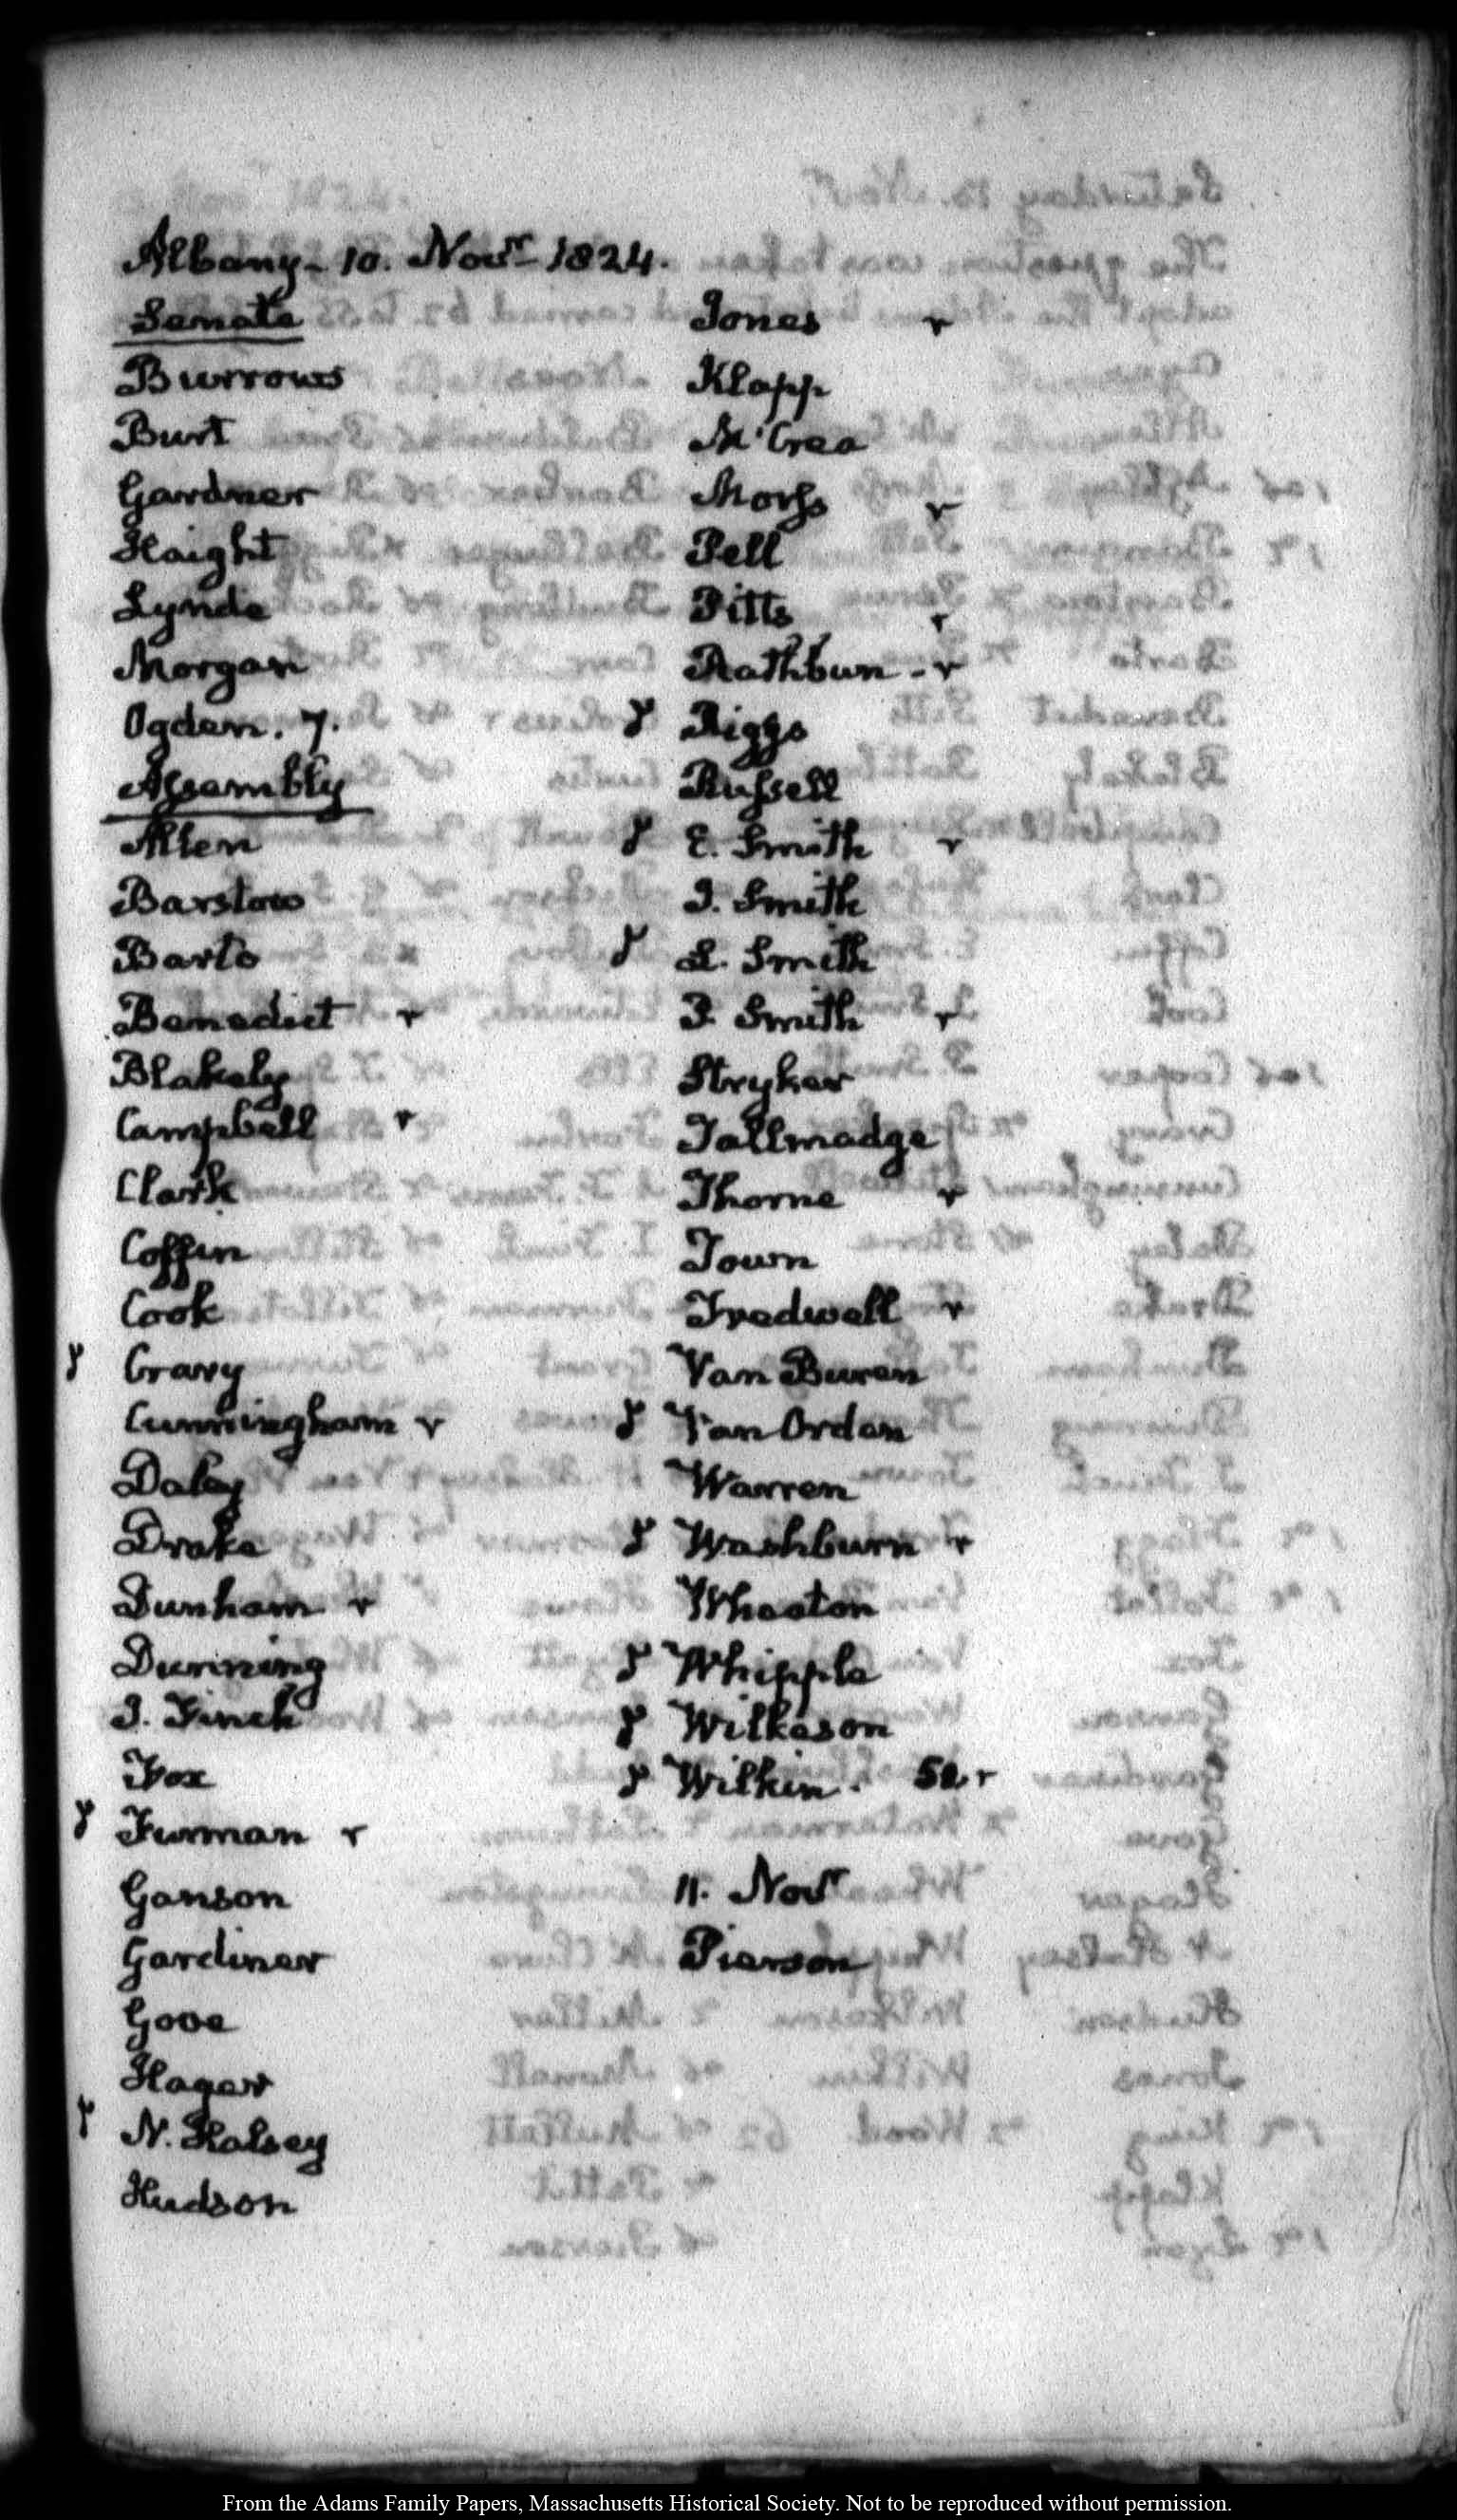 Albany - 10. Novr. 1824.
Senate
Burrows
Burt
Gardner
Haight
Lynde
Morgan
Ogden. 7.
Assembly
Allen
Barstow
Barto
Benedict r
Blakely
Campbell r
Clark
Coffin
Cook
γ Crary
Cunningham r
Daley
Drake
Dunham r
Dunning
I. Finch
Fox
γ Furman r
Ganson
Gardiner
Gove
Hager
γ N. Halsey
Hudson
Jones r
Klapp
McCrea
Morss r
Pell
Pitts r
Rathbun - r
γ Riggs
Russell
γ E. Smith r
I. Smith
γ L. Smith
P. Smith r
Stryker
Tallmadge
Thorne r
Town
Tredwell r
Van Buren
γ Van Orden
Warren
γ Washburn r
Wheaton
γ Whipple
γ Wilkeson
γ Wilkin. 52 r
11. Novr
Pierson
From the Adams Family Papers, Massachusetts Historical Society. Not to be reproduced without permission.